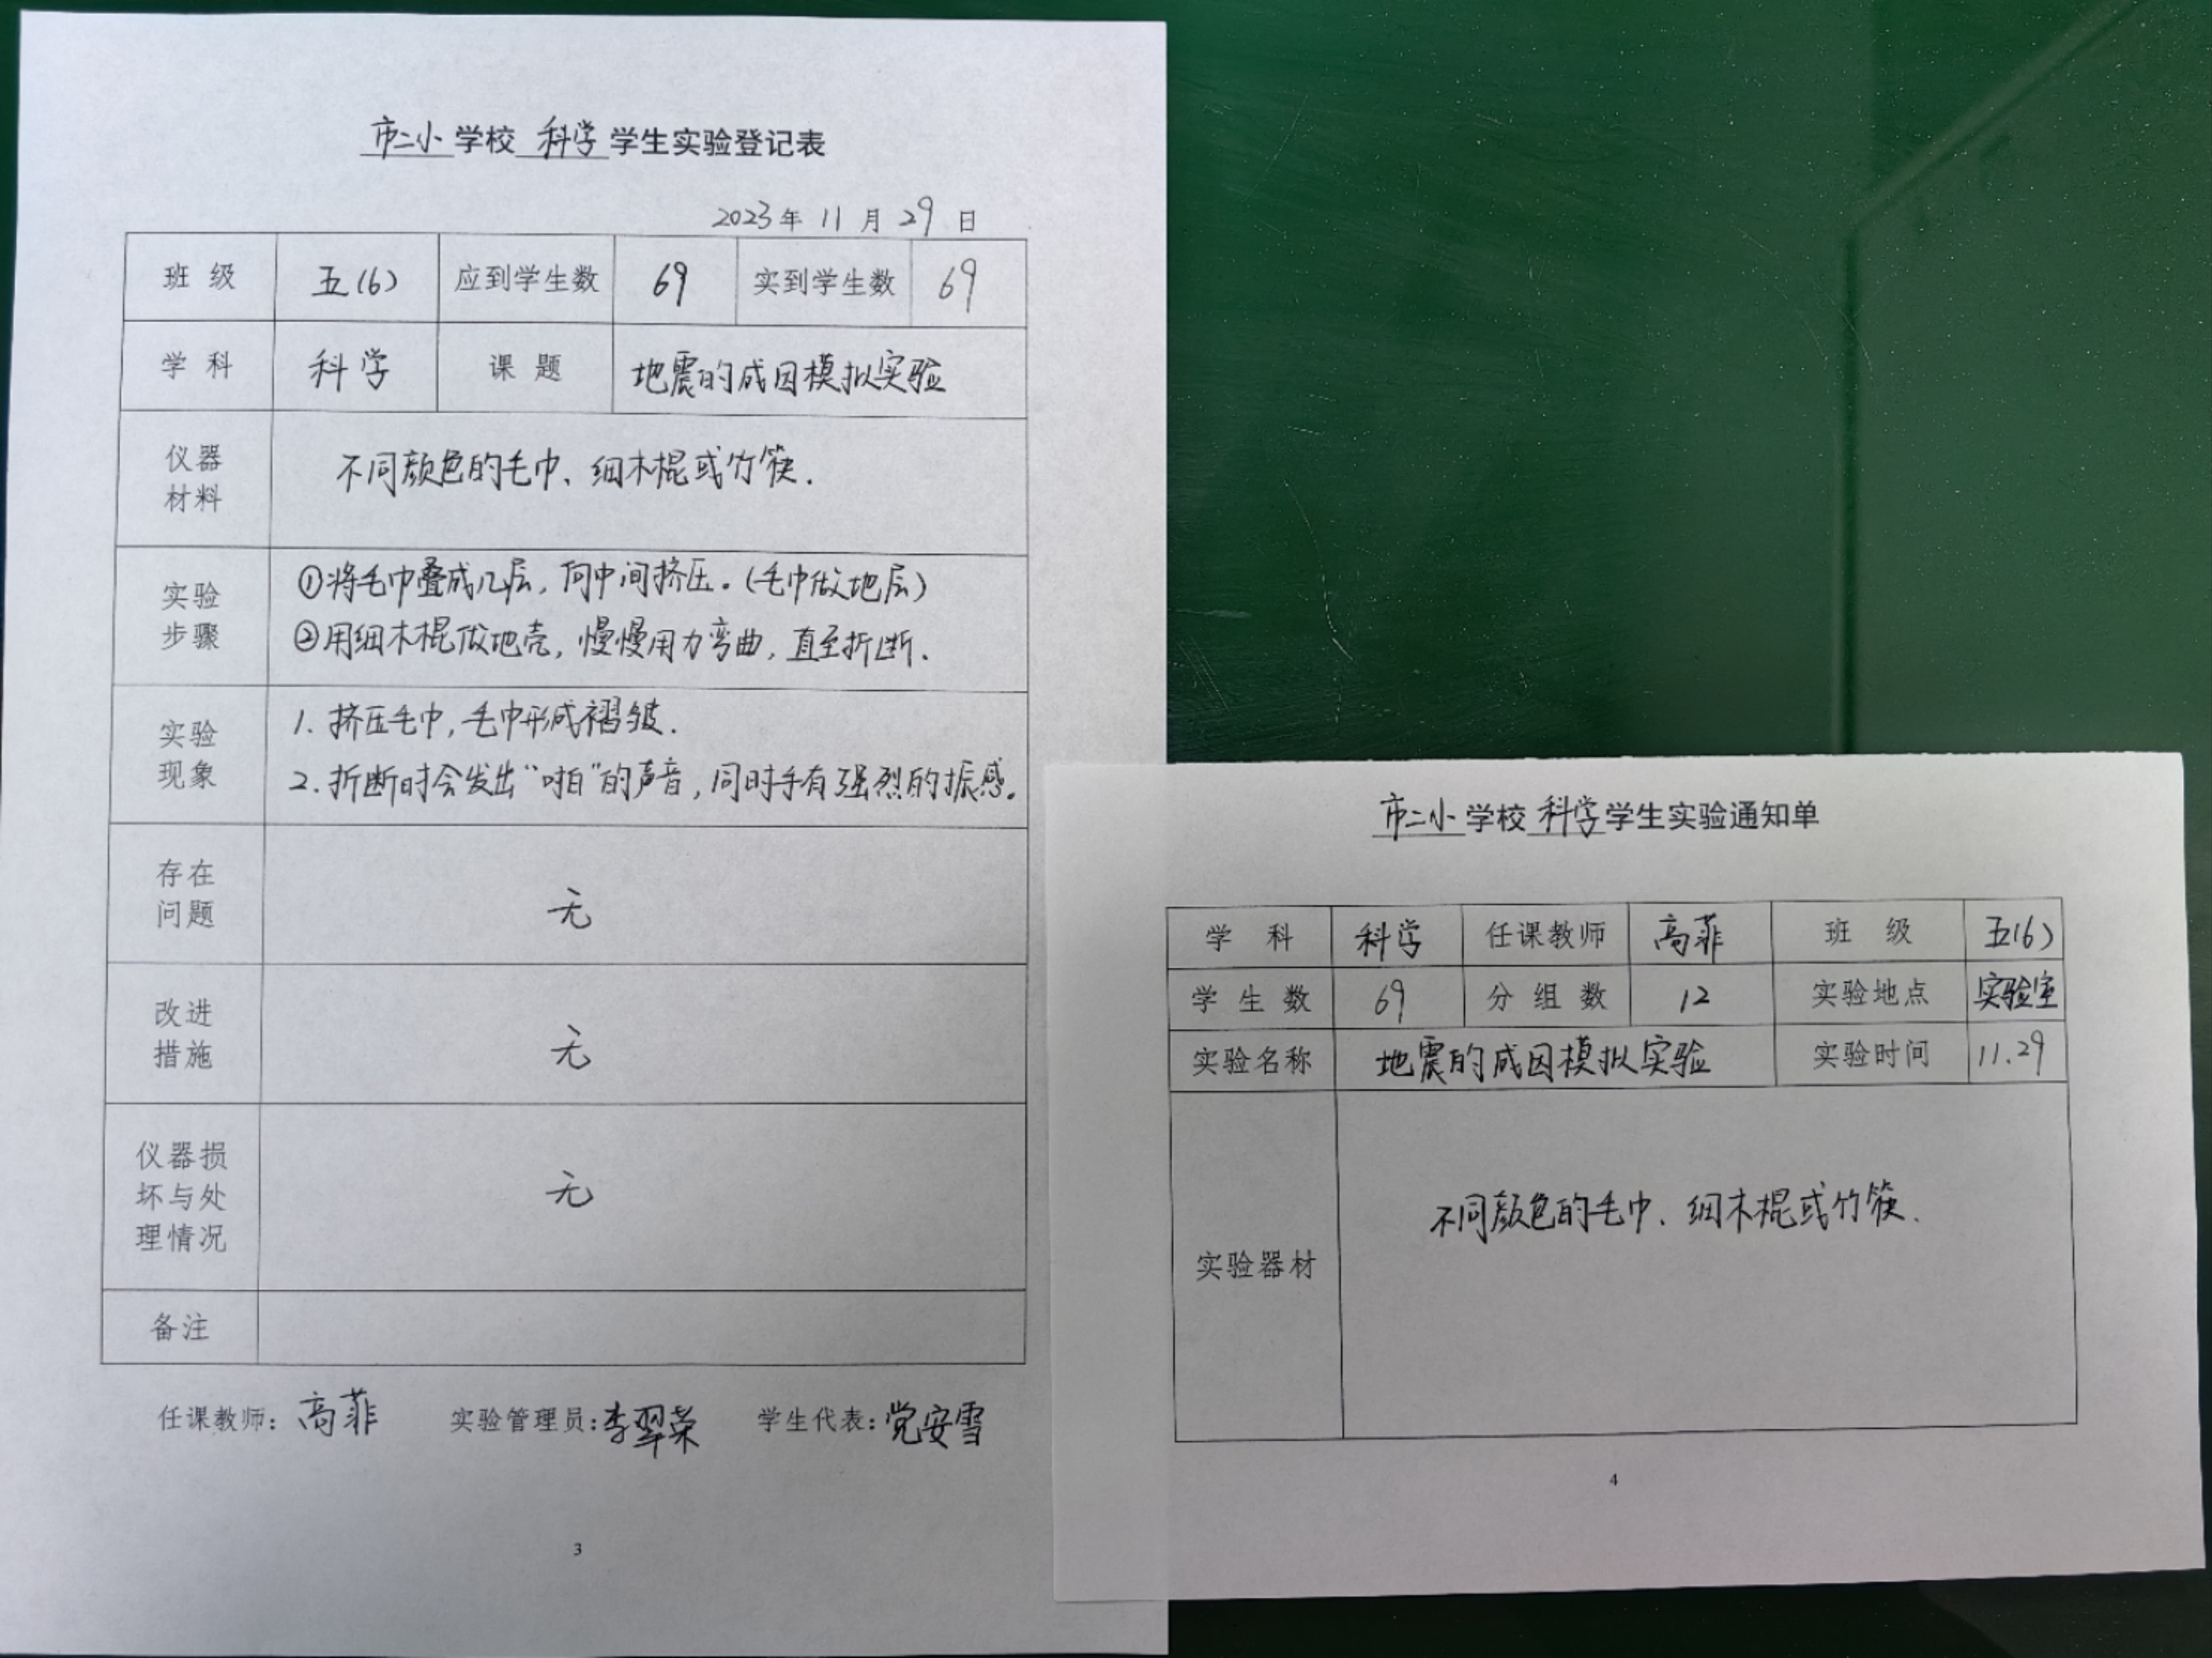 市二小学校 科学 学生实验登记表
2023年 11 月 29 日
班 级 五(6) 应到学生数 69 实到学生数 69
学 科 科学 课 题 地震的成因模拟实验
仪器
材料
不同颜色的毛巾、细木棍或竹筷.
实验
步骤
①将毛巾叠成几层,向中间挤压。(毛巾做地层)
②用细木棍做地壳,慢慢用力弯曲,直至折断.
实验
现象
1. 挤压毛巾,毛巾形成褶皱.
2. 折断时会发出“啪”的声音,同时手有强烈的振感。
存在
问题
无
改进
措施
无
仪器损
坏与处
理情况
无
备注
任课教师: 高菲 实验管理员:李翠荣 学生代表:党安雪
3
市二小学校 科学 学生实验通知单
学 科 科学 任课教师 高菲 班 级 五(6)
学 生 数 69 分 组 数 12 实验地点 实验室
实验名称 地震的成因模拟实验 实验时间 11.29
实验器材
不同颜色的毛巾、细木棍或竹筷.
4